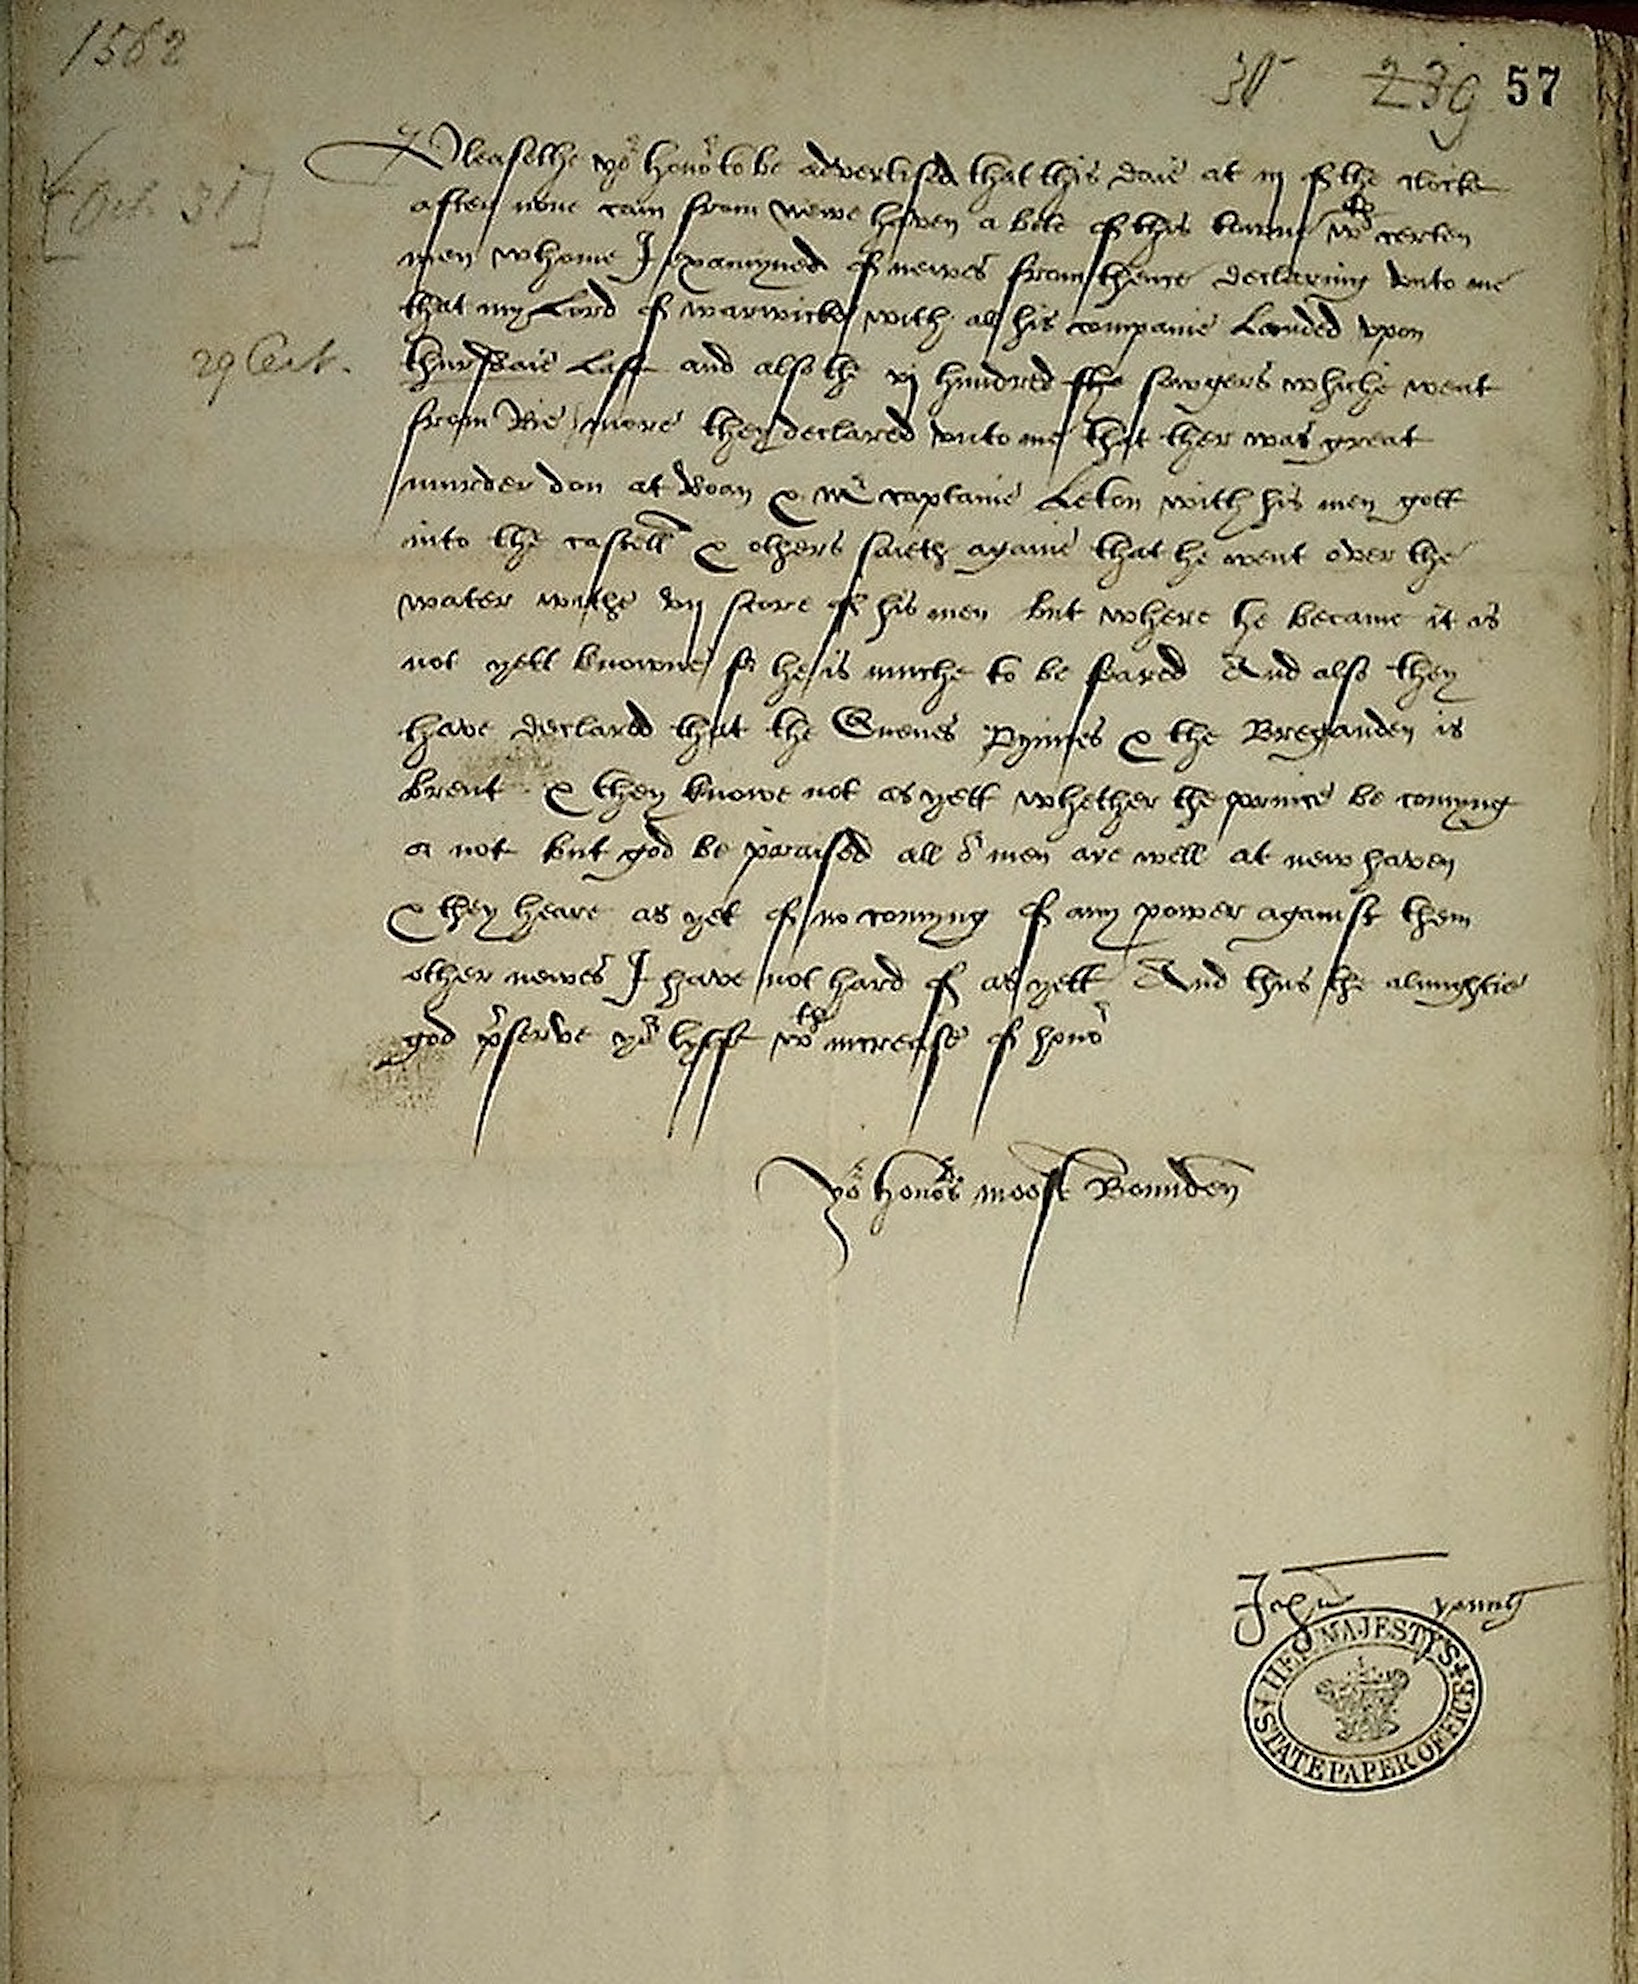 1562
30 239 57
[Oct. 31]
Pleasethe yor honor to be advertised that this daie at iij of the clocke
after none cam from newe haven a bote of this towne wth certen
men whome I examyned of newes from thence declaring vnto me
that my Lord of warwicke with all his companie Landed vpon
29 Oct.
thursdaie Last and also the vj hundred sowgers whiche went
from Rie more they declared vnto me that ther was great
murder don at Roan & Mr captaine Leton with his men gott
into the castell & others saieth againe that he went over the
water withe vij score of his men but where he became it is
not yett knowne so he is muche to be feared And also they
have declared that the Quenes Pynnes & the Breganden is
brent & they knowe not as yett whether the prince be comyng
or not but god be praised all or men are well at newhaven
& they heare as yet of no comyng of any power against them
other newes I have not hard of as yett And thus the almightie
god pserve yor lyffe wth increase of honor
Yor honors moost Bounden
John yonng
HER MAJESTY'S
STATE PAPER OFFICE